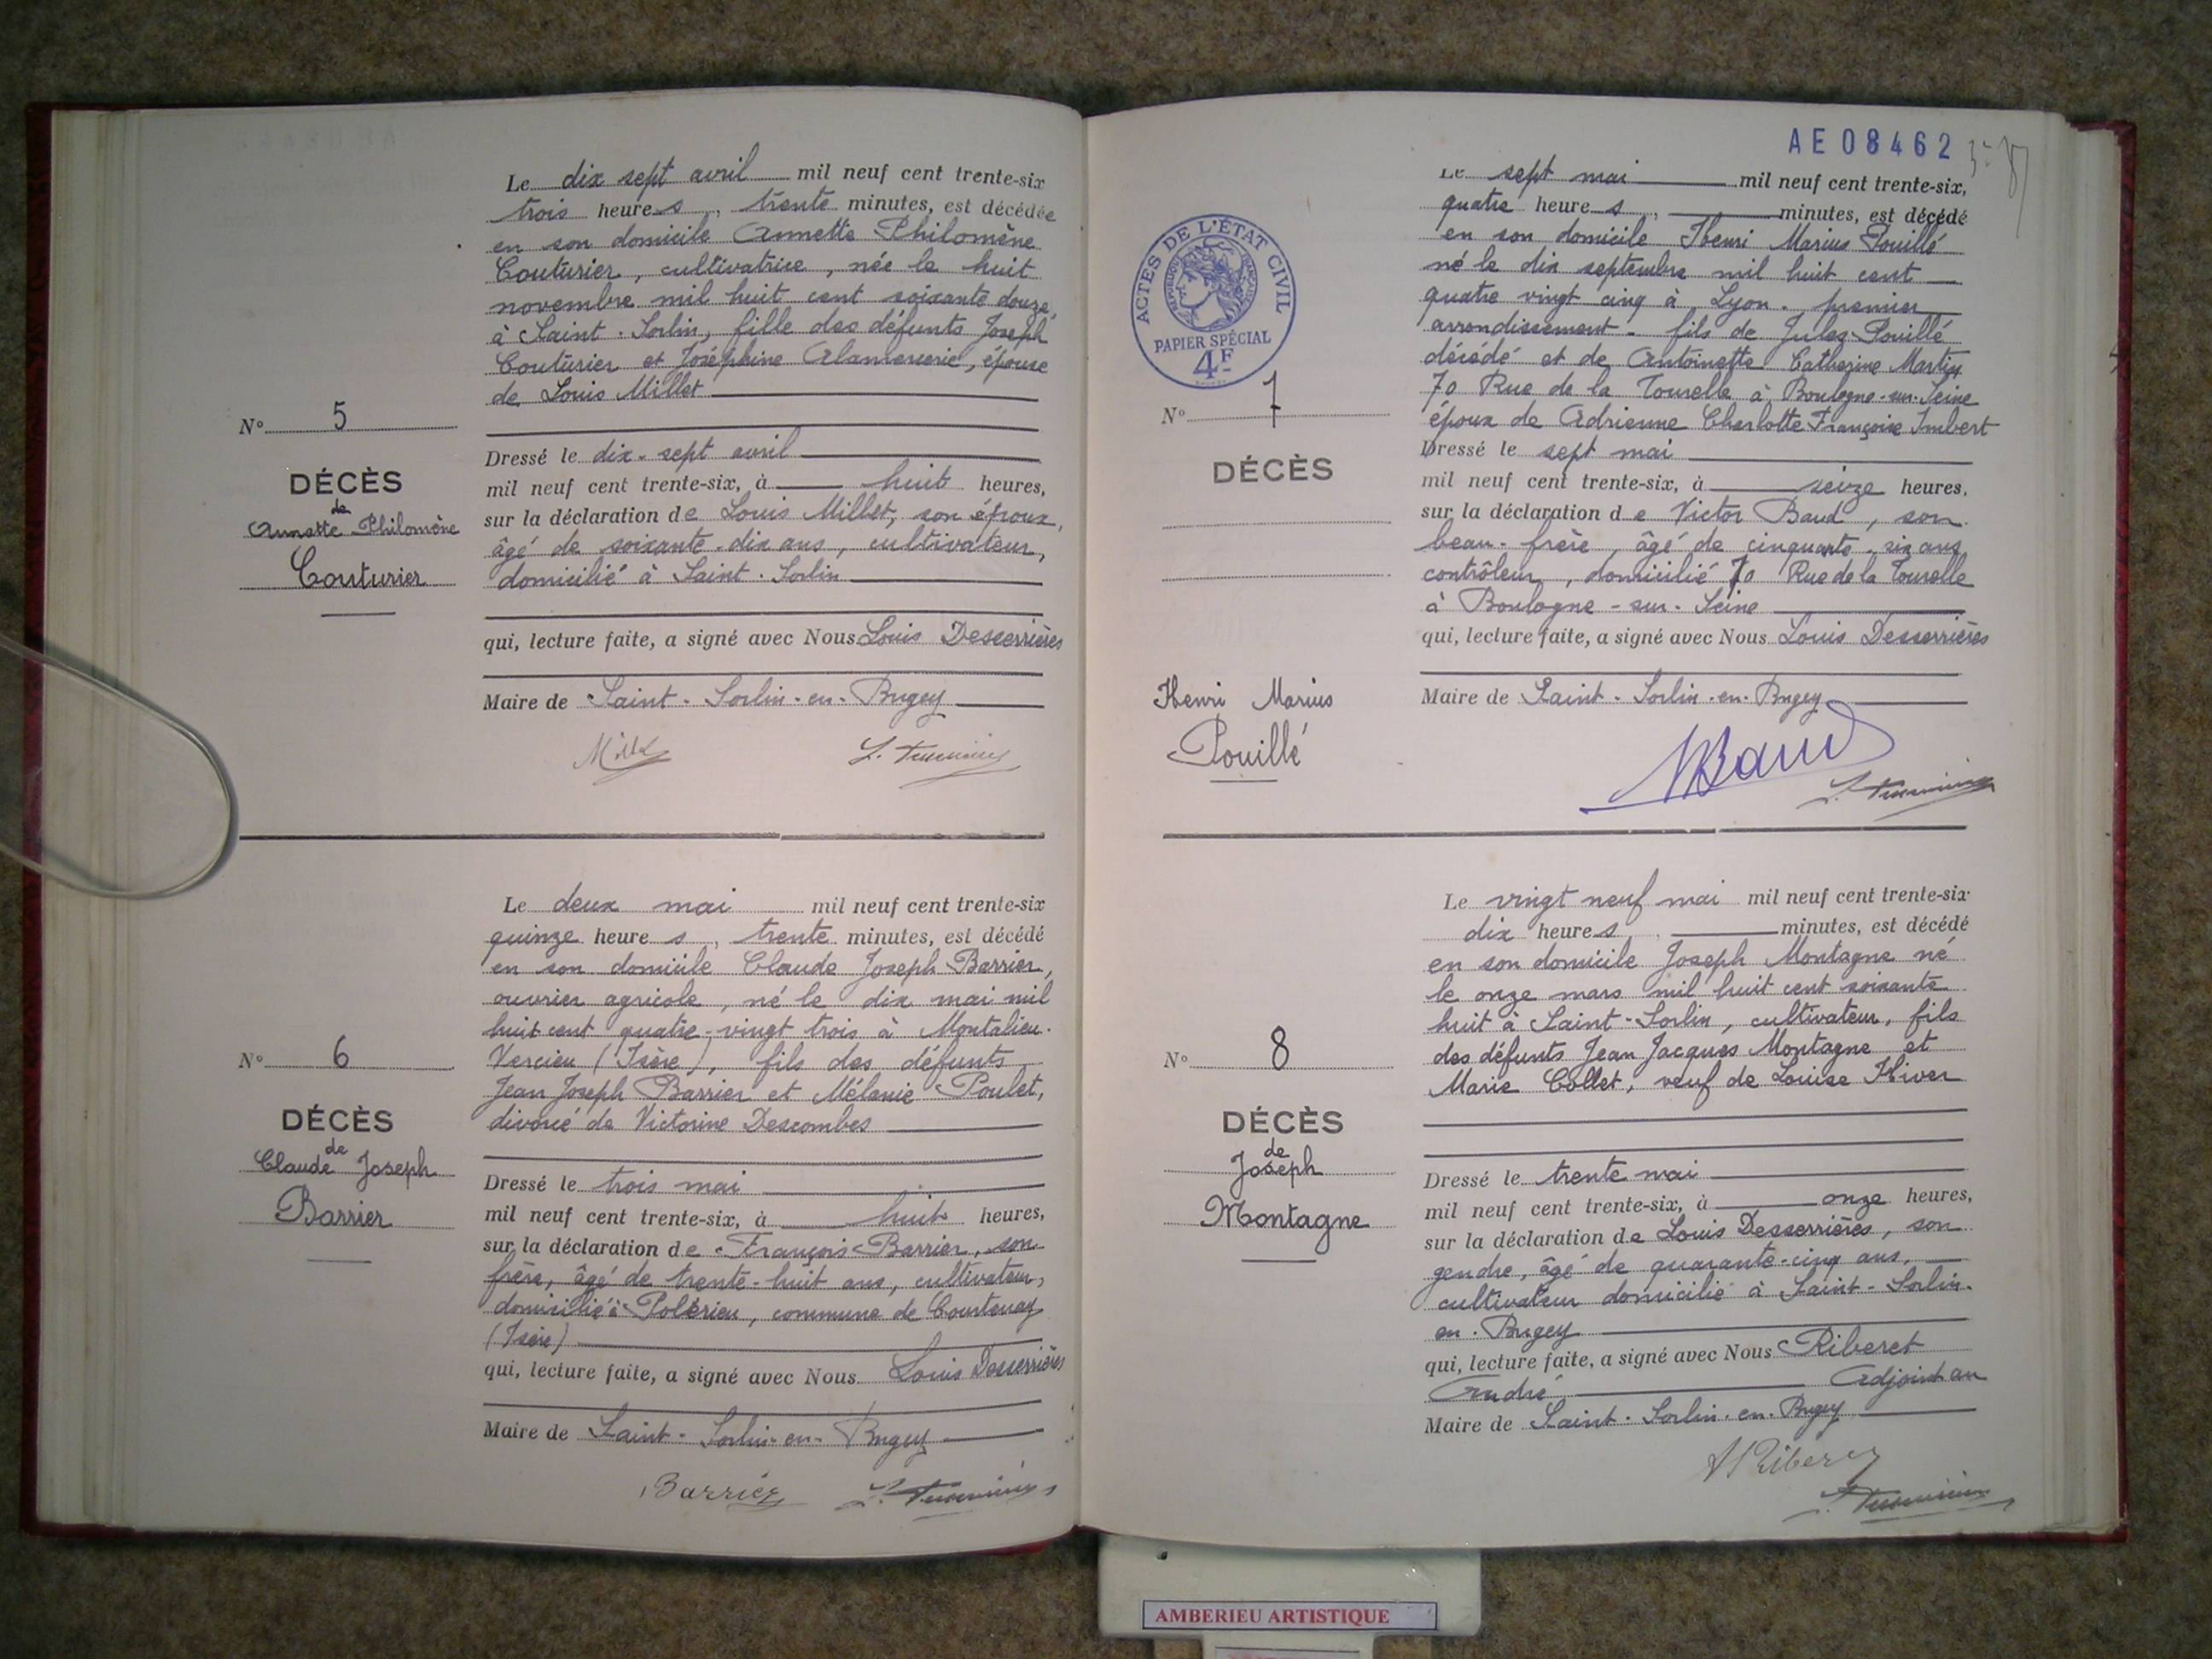 Le dix sept avril mil neuf cent trente-six
trois heures, trente minutes, est décédée
en son domicile Annette Philomène
Couturier, cultivatrice, née le huit
novembre mil huit cent soixante douze,
à Saint-Sorlin, fille des défunts Joseph
Couturier et Joséphine Alamercerie, épouse
de Louis Millet
N° 5
DÉCÈS
de
Annette Philomène
Couturier
Dressé le dix-sept avril
mil neuf cent trente-six, à huit heures,
sur la déclaration de Louis Millet, son époux,
âgé de soixante-dix ans, cultivateur,
domicilié à Saint-Sorlin
qui, lecture faite, a signé avec Nous Louis Desserrières
Maire de Saint-Sorlin-en-Bugey
Le deux mai mil neuf cent trente-six
quinze heures, trente minutes, est décédé
en son domicile Claude Joseph Barrier,
ouvrier agricole, né le dix mai mil
huit cent quatre-vingt trois à Montalieu-
Vercieu (Isère), fils des défunts
Jean Joseph Barrier et Mélanie Poulet,
divorcé de Victorine Descombes
N° 6
DÉCÈS
de
Claude Joseph
Barrier
Dressé le trois mai
mil neuf cent trente-six, à huit heures,
sur la déclaration de François Barrier, son
frère, âgé de trente-huit ans, cultivateur,
domicilié à Poleyrieu, commune de Courtenay
(Isère)
qui, lecture faite, a signé avec Nous Louis Desserrières
Maire de Saint-Sorlin-en-Bugey
Barrier
AE08462
ACTES DE L'ÉTAT CIVIL
RÉPUBLIQUE FRANÇAISE
PAPIER SPÉCIAL
4F
Le sept mai mil neuf cent trente-six,
quatre heures, minutes, est décédé
en son domicile Henri Marius Pouillé
né le dix septembre mil huit cent
quatre vingt cinq à Lyon-premier
arrondissement - fils de Jules Pouillé
décédé et de Antoinette Catherine Martin
70 Rue de la Tourelle à Boulogne-sur-Seine
époux de Adrienne Charlotte Françoise Imbert
N° 7
DÉCÈS
Henri Marius
Pouillé
Dressé le sept mai
mil neuf cent trente-six, à seize heures,
sur la déclaration de Victor Baud, son
beau-frère, âgé de cinquante-six ans
contrôleur, domicilié 70 Rue de la Tourelle
à Boulogne-sur-Seine
qui, lecture faite, a signé avec Nous Louis Desserrières
Maire de Saint-Sorlin-en-Bugey
VBaud
Le vingt neuf mai mil neuf cent trente-six
dix heures, minutes, est décédé
en son domicile Joseph Montagne né
le onze mars mil huit cent soixante
huit à Saint-Sorlin, cultivateur, fils
des défunts Jean Jacques Montagne et
Marie Collet, veuf de Louise Hiver
N° 8
DÉCÈS
de
Joseph
Montagne
Dressé le trente mai
mil neuf cent trente-six, à onze heures,
sur la déclaration de Louis Desserrières, son
gendre, âgé de quarante-cinq ans,
cultivateur domicilié à Saint-Sorlin-
en-Bugey
qui, lecture faite, a signé avec Nous Riberet
André Adjoint au
Maire de Saint-Sorlin-en-Bugey
A Riberet
AMBERIEU ARTISTIQUE